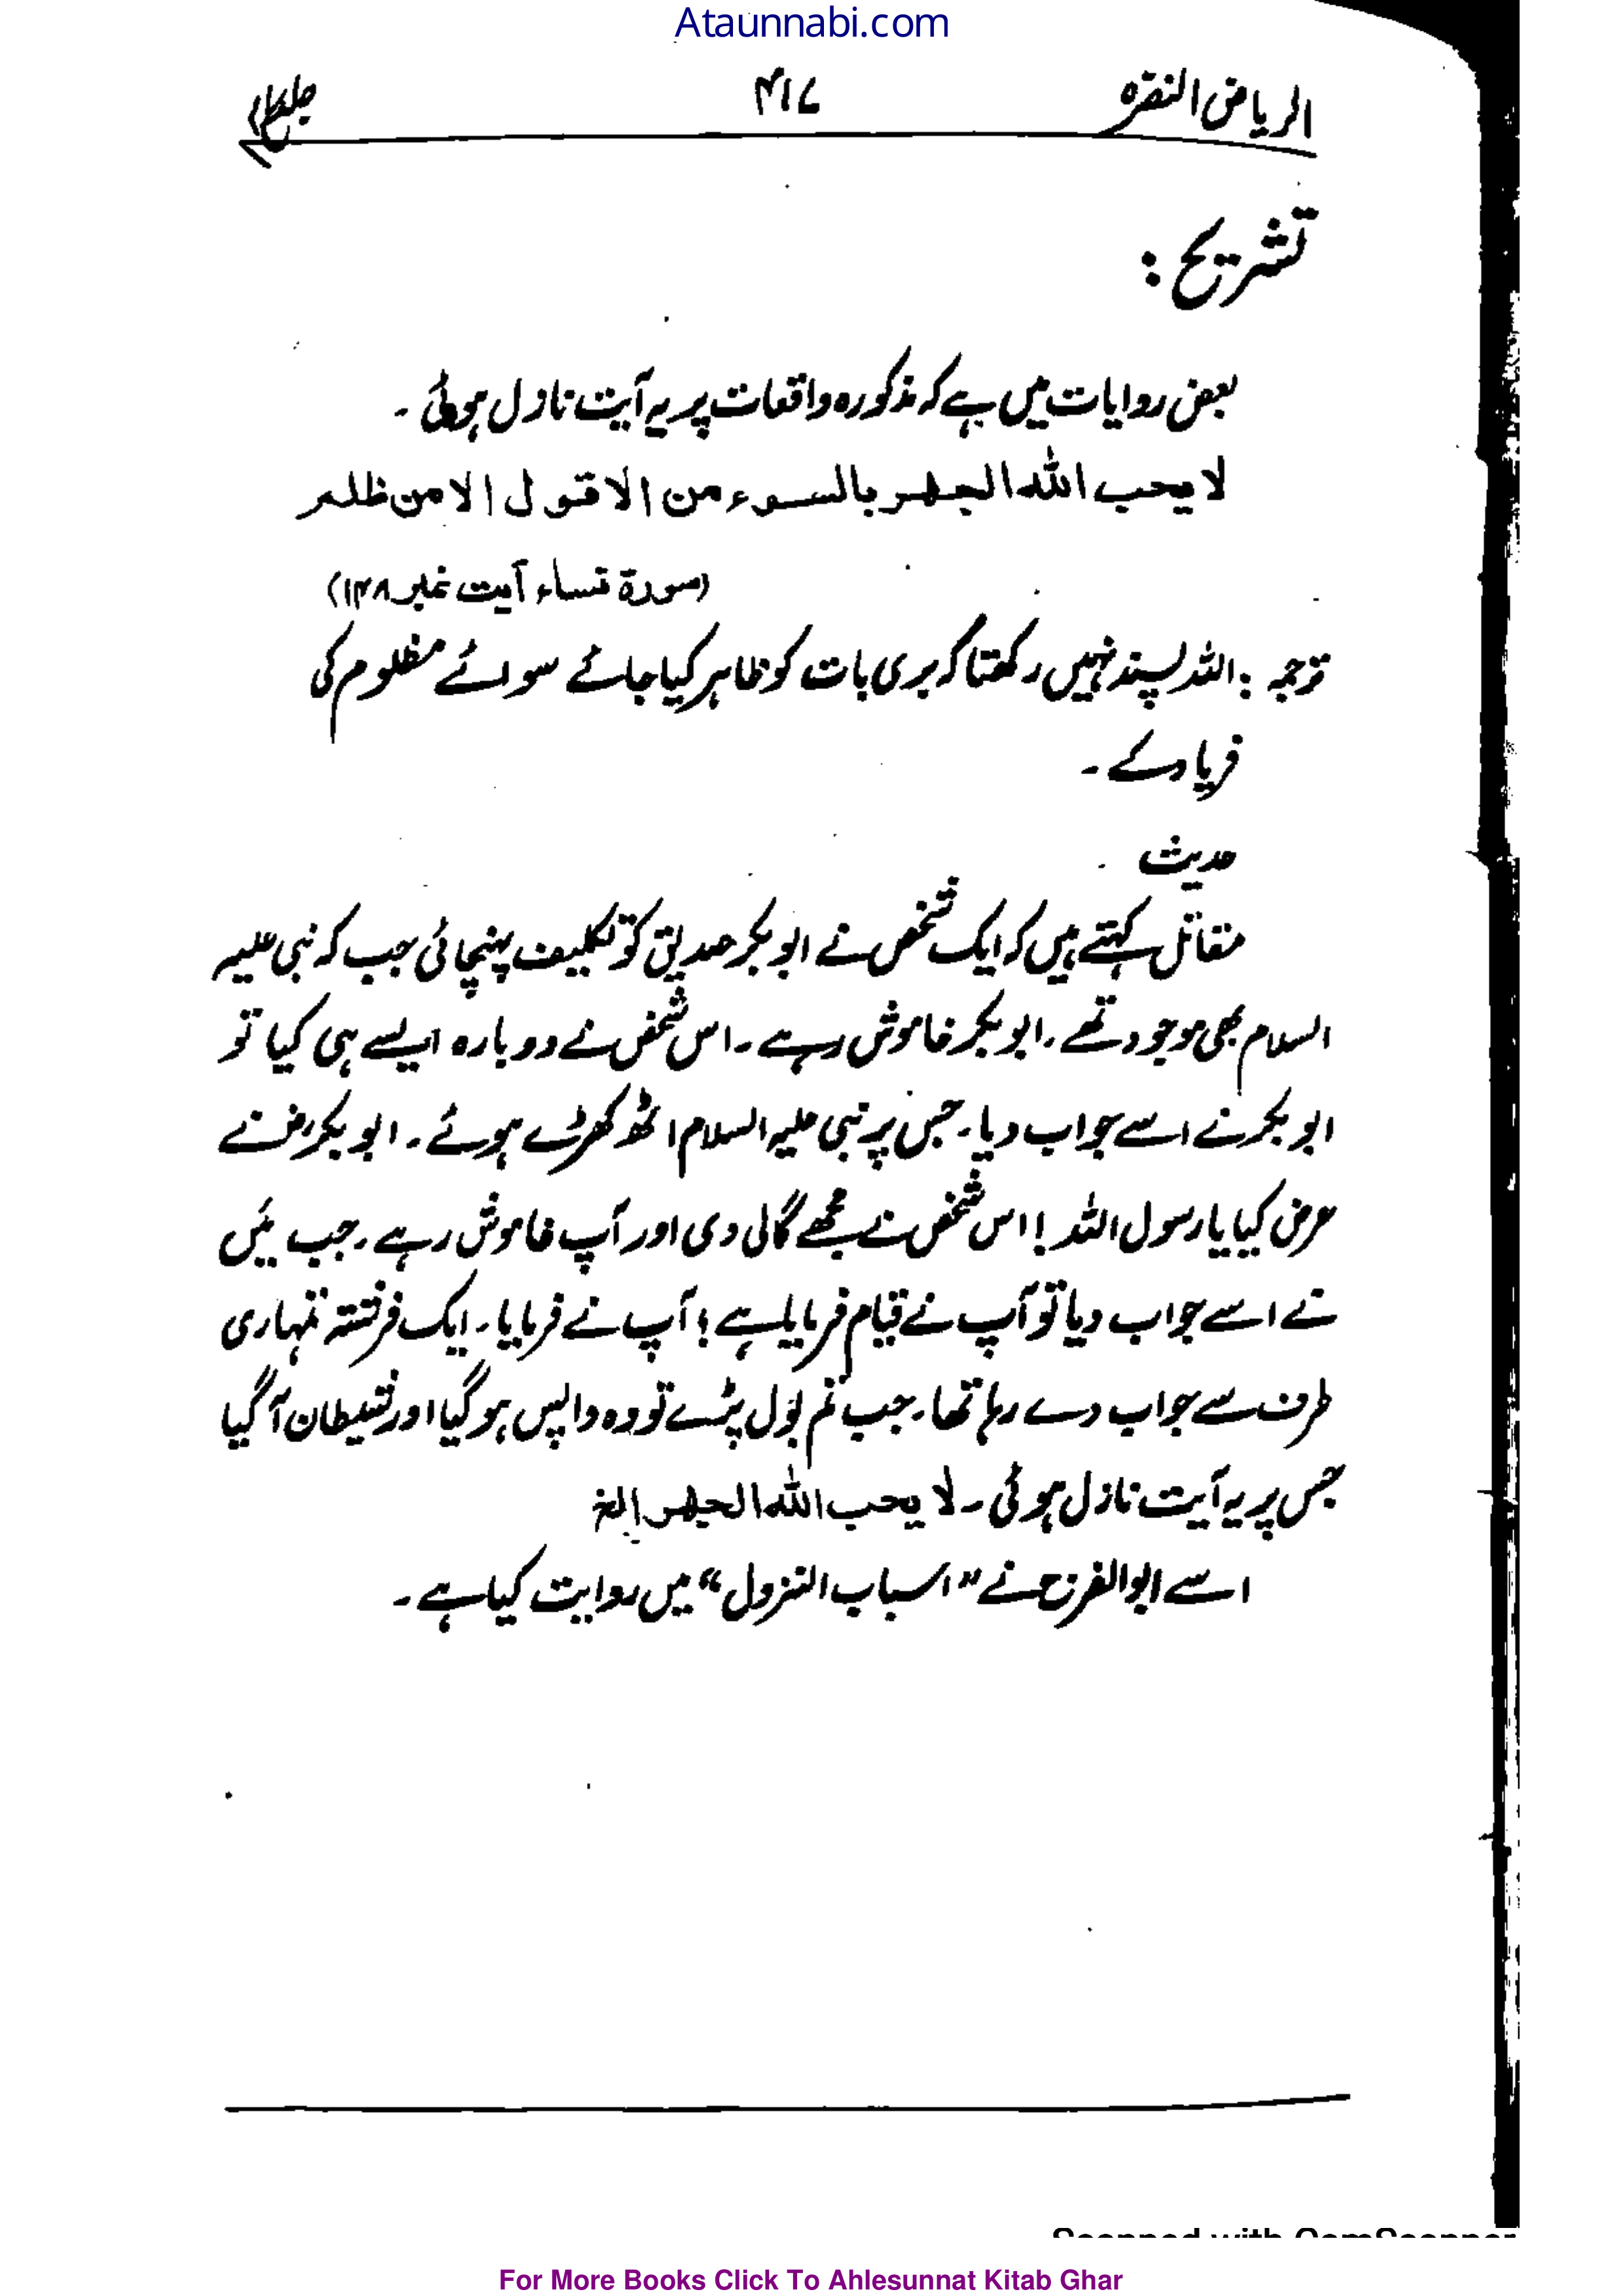 Ataunnabi.com
الریاض النضرہ ۴۱۷ جلد
تشریح :
بعض روایات میں ہے کہ مذکورہ واقعات پر یہ آیت نازل ہوئی ۔
لا یحب اللہ الجھر بالسوء من الاقول الا من ظلم
(سورۃ نساء آیت نمبر ۱۴۸)
ترجمہ : اللہ پسند نہیں رکھتا کہ بری بات کو ظاہر کیا جائے سوائے مظلوم کی
فریاد کے ۔
حدیث
مقاتل کہتے ہیں کہ ایک شخص نے ابوبکر صدیق کو تکلیف پہنچائی جب کہ نبی علیہ
السلام بھی موجود تھے ۔ ابوبکر خاموش رہے ۔ اس شخص نے دوبارہ ایسے ہی کیا تو
ابوبکر نے اسے جواب دیا ۔ جس پر نبی علیہ السلام اٹھ کھڑے ہوئے ۔ ابوبکر رض نے
عرض کیا یا رسول اللہ ! اس شخص نے مجھے گالی دی اور آپ خاموش رہے ۔ جب میں
نے اسے جواب دیا تو آپ نے قیام فرمایا ہے ؟ آپ نے فرمایا ۔ ایک فرشتہ تمہاری
طرف سے جواب دے رہا تھا ۔ جب تم بول پڑے تو وہ واپس ہو گیا اور شیطان آ گیا
جس پر یہ آیت نازل ہوئی ۔ لا یحب اللہ الجھر الخ
اسے ابوالفرج نے "اسباب النزول" میں روایت کیا ہے ۔
Scanned with CamScanner
For More Books Click To Ahlesunnat Kitab Ghar